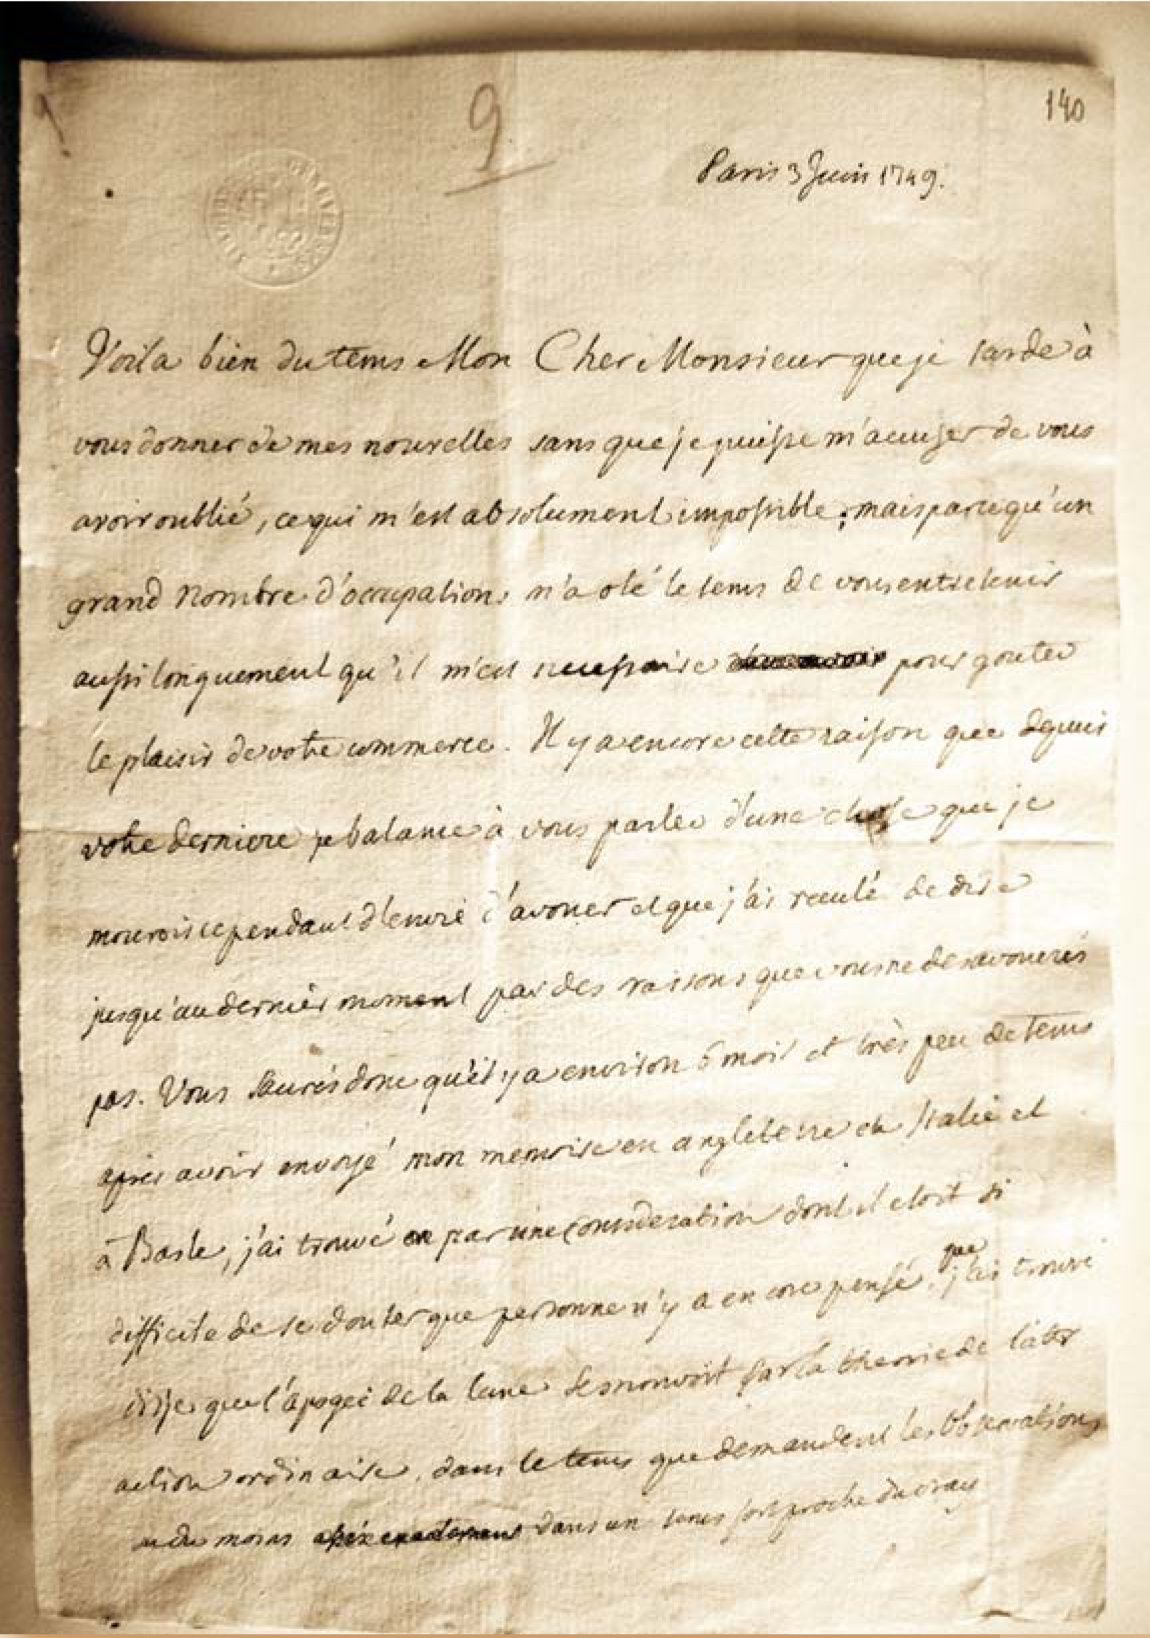 9
140
Paris 3 Juin 1749.
Voila bien du tems Mon Cher Monsieur que je tarde à
vous donner de mes nouvelles sans que je puisse m'accuser de vous
avoir oublié, ce qui m'est absolument impossible; mais parce qu'un
grand nombre d'occupations m'a oté le tems de vous entretenir
aussi longuement qu'il m'est necessaire pour gouter
le plaisir de votre commerce. Il y a encore cette raison que depuis
votre derniere je balance à vous parler d'une chose que je
mourois cependant d'envie d'avouer et que j'ai reculé de dire
jusqu'au dernier moment par des raisons que vous ne desavouerés
pas. Vous saurés donc qu'il y a environ 6 mois et très peu de tems
après avoir envoyé mon memoire en angleterre en Italie et
à Basle, j'ai trouvé par une consideration dont il etoit si
difficile de se douter que personne n'y a encore pensé, que j'ai trouvé
disje que l'apogée de la lune se mouvoit par la theorie de l'attr
action ordinaire, dans le tems que demandent les Observations,
ou du moins dans un tems fort proche du vray